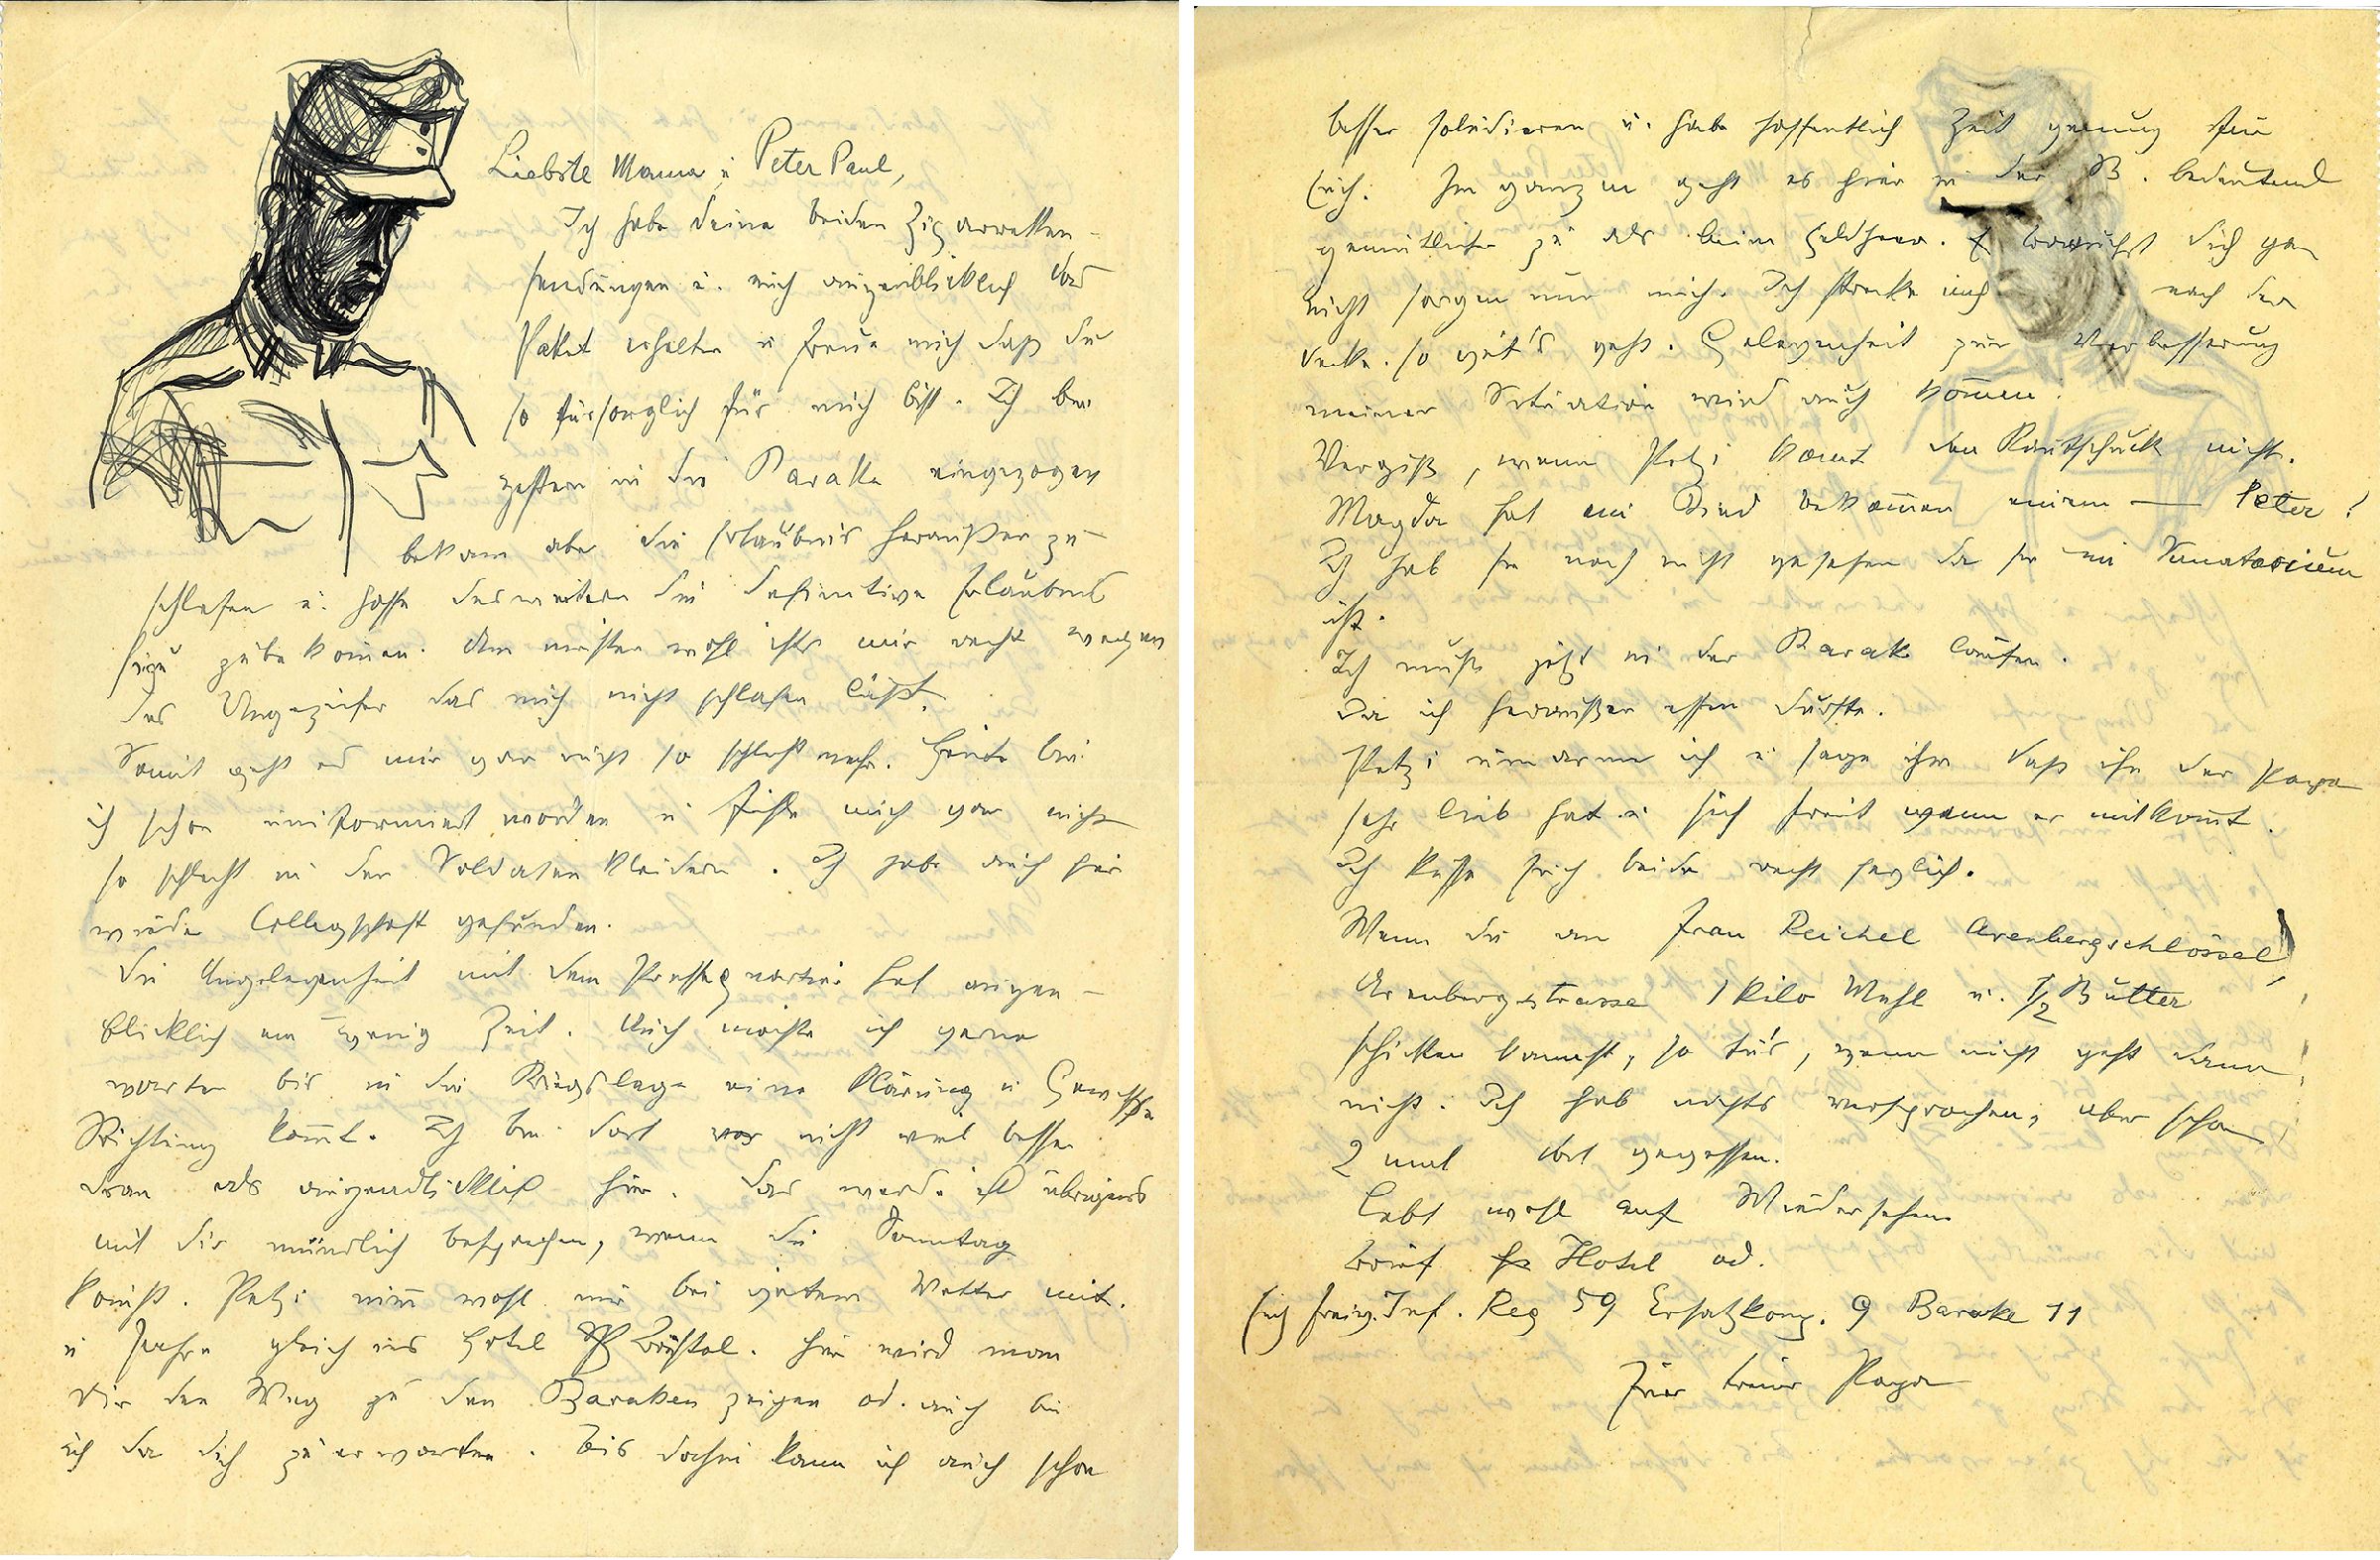 Liebste Mama u Peter Paul,
Ich habe deine beiden Zigarretten-
sendungen u. auch augenblicklich das
Paket erhalten u freue mich daß du
so fürsorglich für mich bist. Ich bin
gestern in die Baracke eingezogen
bekam aber die Erlaubnis heraußen zu
schlafen u. hoffe des weitern die definitive Erlaubnis
hiezu zu bekom̄en. Am meisten wohl ists mir recht wegen
des Ungeziefer das mich nicht schlafen läßt.
Somit geht es mir gar nicht so schlecht mehr. Heute bin
ich schon uniformiert worden u fühle mich gar nicht
so schlecht in den Soldatenkleidern. Ich habe auch hier
wieder Collegschaft gefunden.
Die Angelegenheit mit dem Pressequartier hat augen-
blicklich ein wenig Zeit. Auch möchte ich gerne
warten bis in die Kriegslage eine Klärung u Gewisse
Richtung kom̄t. Ich bin dort nicht viel besser
dran als augenblicklich hier. Das werde ich übrigens
mit dir mündlich besprechen, wenn du Sonntag
kom̄st. Petzi nim̄ wohl nur bei gutem Wetter mit.
u fahre gleich ins Hotel Bristol. Hier wird man
dir den Weg zu den Baraken zeigen od. auch bin
ich da dich zu erwarten. Bis dahin kann ich auch schon
besser soludieren u. habe hoffentlich Zeit genug für
Euch. Im ganzen geht es hier in der B. bedeutend
gemütlicher zu als beim Feldheer. brauchst dich gar
nicht sorgen um mich. Ich strecke mich nach der
Decke so gut's geht. Gelegenheit zur Verbesserung
meiner Situation wird auch kom̄en.
Vergiß, wenn Petzi kom̄t den Kautschuck nicht.
Magda hat ein Kind bekom̄en einen — Peter!
Ich hab sie noch nicht gesehen da sie im Sanatorium
ist.
Ich muß jetzt in der Barak laufen.
Da ich heraußen essen durfte.
Petzi umarme ich u sage ihm daß ihn der Papa
sehr lieb hat u sich freut wenn er mitkom̄t.
Ich küsse Euch beide recht herzlich.
Wenn du an Frau Reichel Arenbergschlössel,
Arenbergstrasse 1 Kilo Mehl u. 1/2 Butter
schicken kannst, so tu's, wenn nicht geht dann
nicht. Ich hab nichts versprochen, aber schon
2 mal dort gegessen.
Lebt wohl auf Wiedersehen
Brief Hotel od.
Einj freiw. Inf. Reg 59 Ersatzkomp. 9 Barake 11
Euer treuer Papa